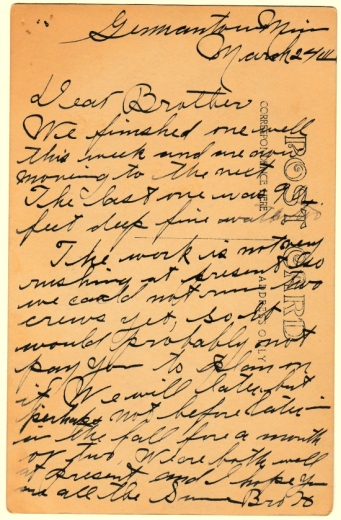 Germantown Minn
March 24/11
Dear Brother
We finished one well
this week and are now
moving to the next
The last one was
feet deep fine water
The work is not very
rushing at present so
we could not run two
crews yet, so it
would probably not
pay you to plan on
it. We will later but
perhaps not before later
in the fall for a month
or two, We are both well
at present and I hope you
are all the Same Bro
POST CARD
CORRESPONDENCE HERE
ADDRESS ONLY